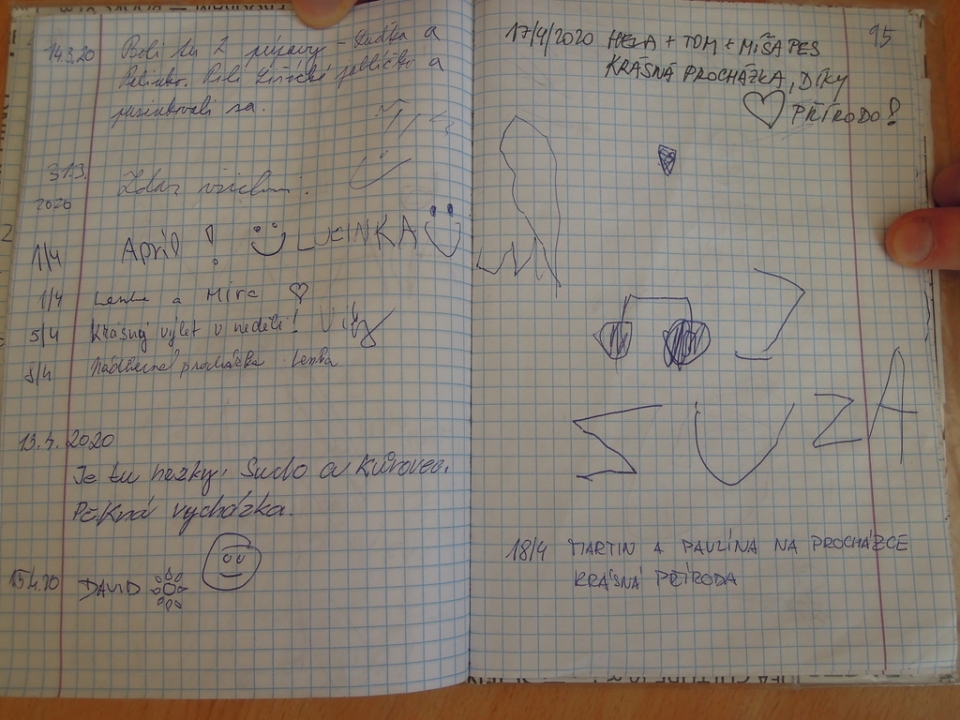 14.3.20 Boli tu 2 - a
a
sa.
31.3.
2020 Zdar všichni!
1/4 April! LUCINKA
1/4 Lenka a Mira
5/4 Krásný výlet v neděli!
8/4 Nádherná procházka Lenka
13.4.2020
Je tu hezky. Sucho a Kůrovec.
PěKná vycházka.
15.4.20 DAVID
95
17/4/2020 HELA + TOM + MÍŠA PES
KRÁSNÁ PROCHÁZKA, DÍKY
PŘÍRODO!
SUZA
18/4 MARTIN A PAVLÍNA NA PROCHÁZCE
KRÁSNÁ PŘÍRODA